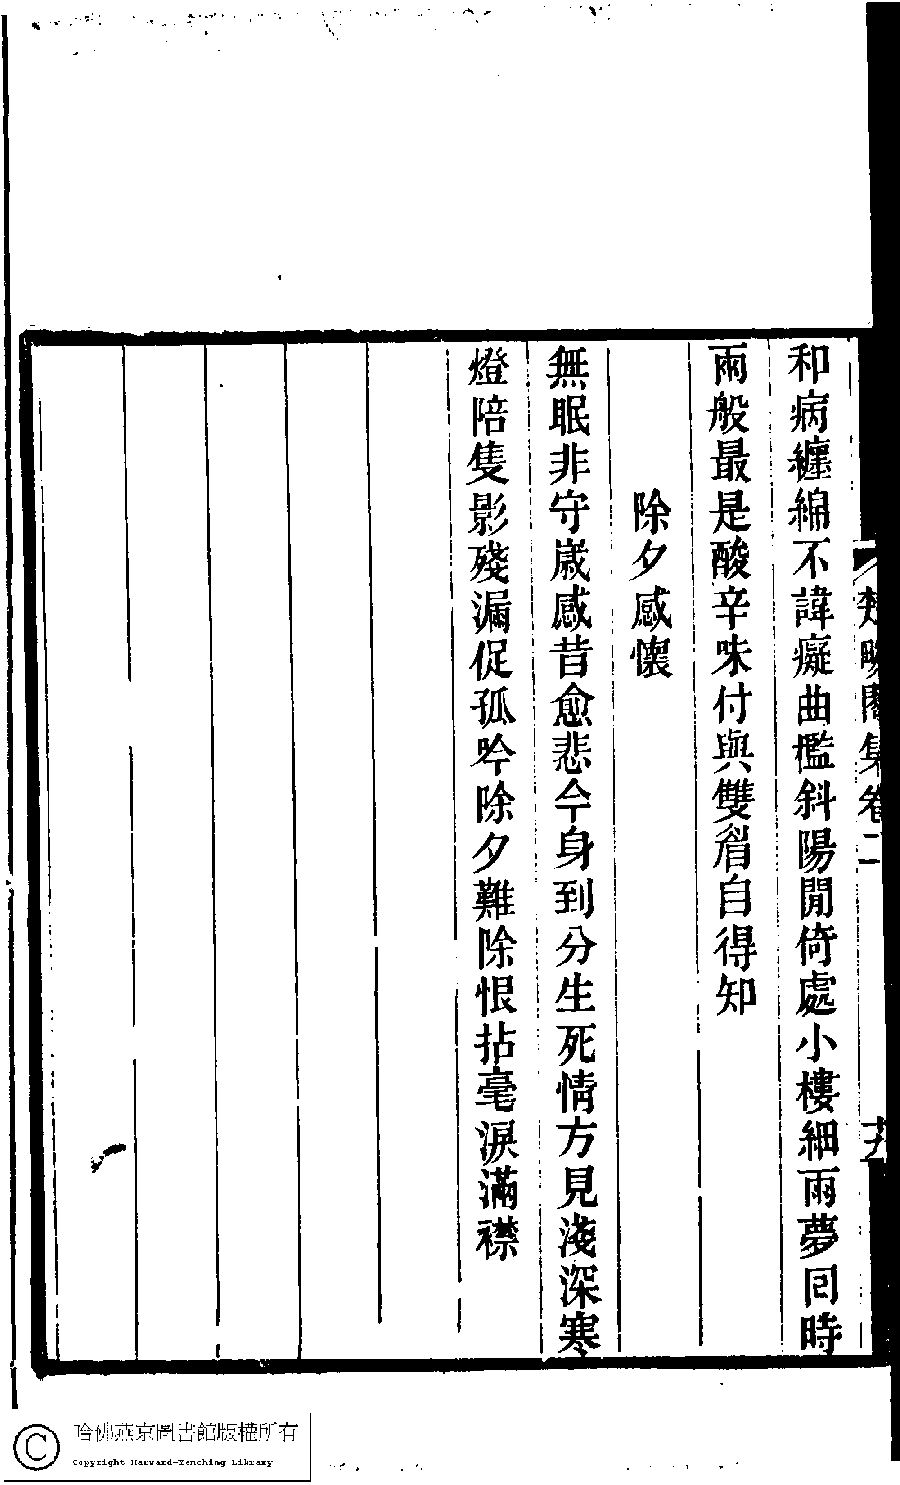 楚畹閣集卷二
和病纏綿不諱癡曲檻斜陽閒倚處小樓細雨夢囘時
兩般最是酸辛味付與雙眉自得知
除夕感懷
無眠非守歲感昔愈悲今身到分生死情方見淺深寒
燈陪隻影殘漏促孤吟除夕難除恨拈毫淚滿襟
哈佛燕京圖書館版權所有
Copyright Harvard-Yenching Library